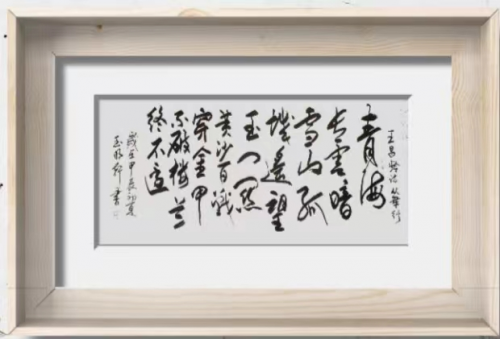 王昌龄诗从军行
青海
长云暗
雪山孤
城遥望
玉门关
黄沙百战
穿金甲
不破楼兰
终不还
甲辰初夏
书